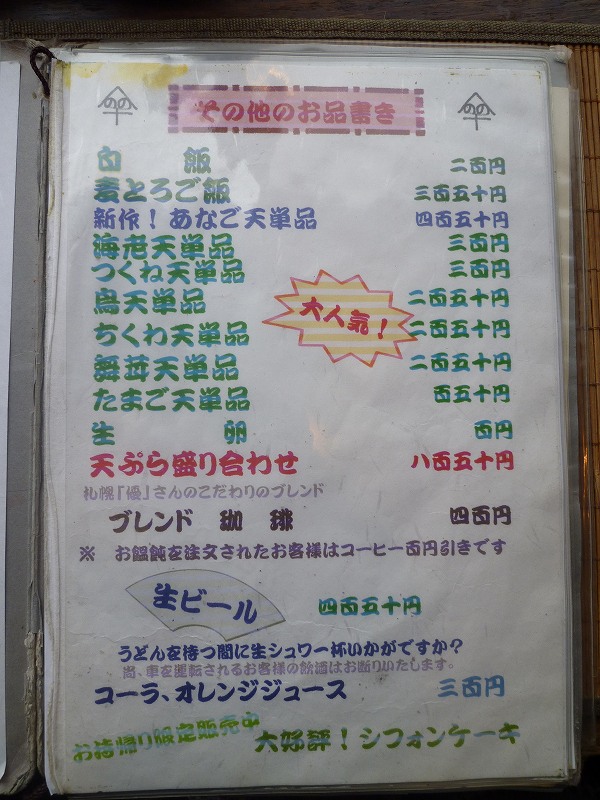 のの
その他のお品書き
のの
白飯 二百円
麦とろご飯 三百五十円
新作！あなご天単品 四百五十円
海老天単品 三百円
つくね天単品 三百円
鳥天単品 二百五十円
大人気！
ちくわ天単品 二百五十円
舞茸天単品 二百五十円
たまご天単品 百五十円
生卵 百円
天ぷら盛り合わせ 八百五十円
札幌「優」さんのこだわりのブレンド
ブレンド 珈琲 四百円
※ お饂飩を注文されたお客様はコーヒー百円引きです
生ビール 四百五十円
うどんを待つ間に生シュワ一杯いかがですか？
尚、車を運転されるお客様の飲酒はお断りいたします。
コーラ、オレンジジュース 三百円
お持帰り限定販売中 大好評！シフォンケーキ